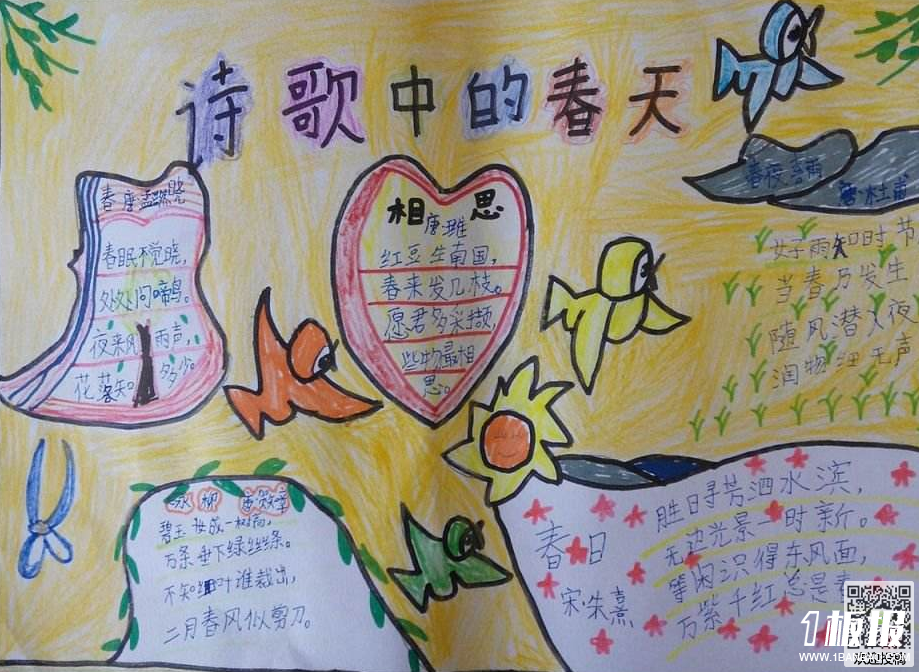 诗歌中的春天
春 唐 孟浩然 晓
春眠不觉晓，
处处问啼鸟。
夜来风雨声，
花落知多少。
相思
唐 维
红豆生南国，
春来发几枝。
愿君多采撷，
些物最相
思。
春夜喜雨
杜甫
好雨知时节
当春乃发生
随风潜入夜
润物 无声
咏柳 唐
碧玉妆成一树高，
万条垂下绿丝绦。
不知细叶谁裁出，
二月春风似剪刀。
春日
宋·朱熹
胜日寻芳泗水滨，
无边光景一时新。
等闲识得东风面，
万紫千红总是春
1板报
WWW.1BANBAO.COM